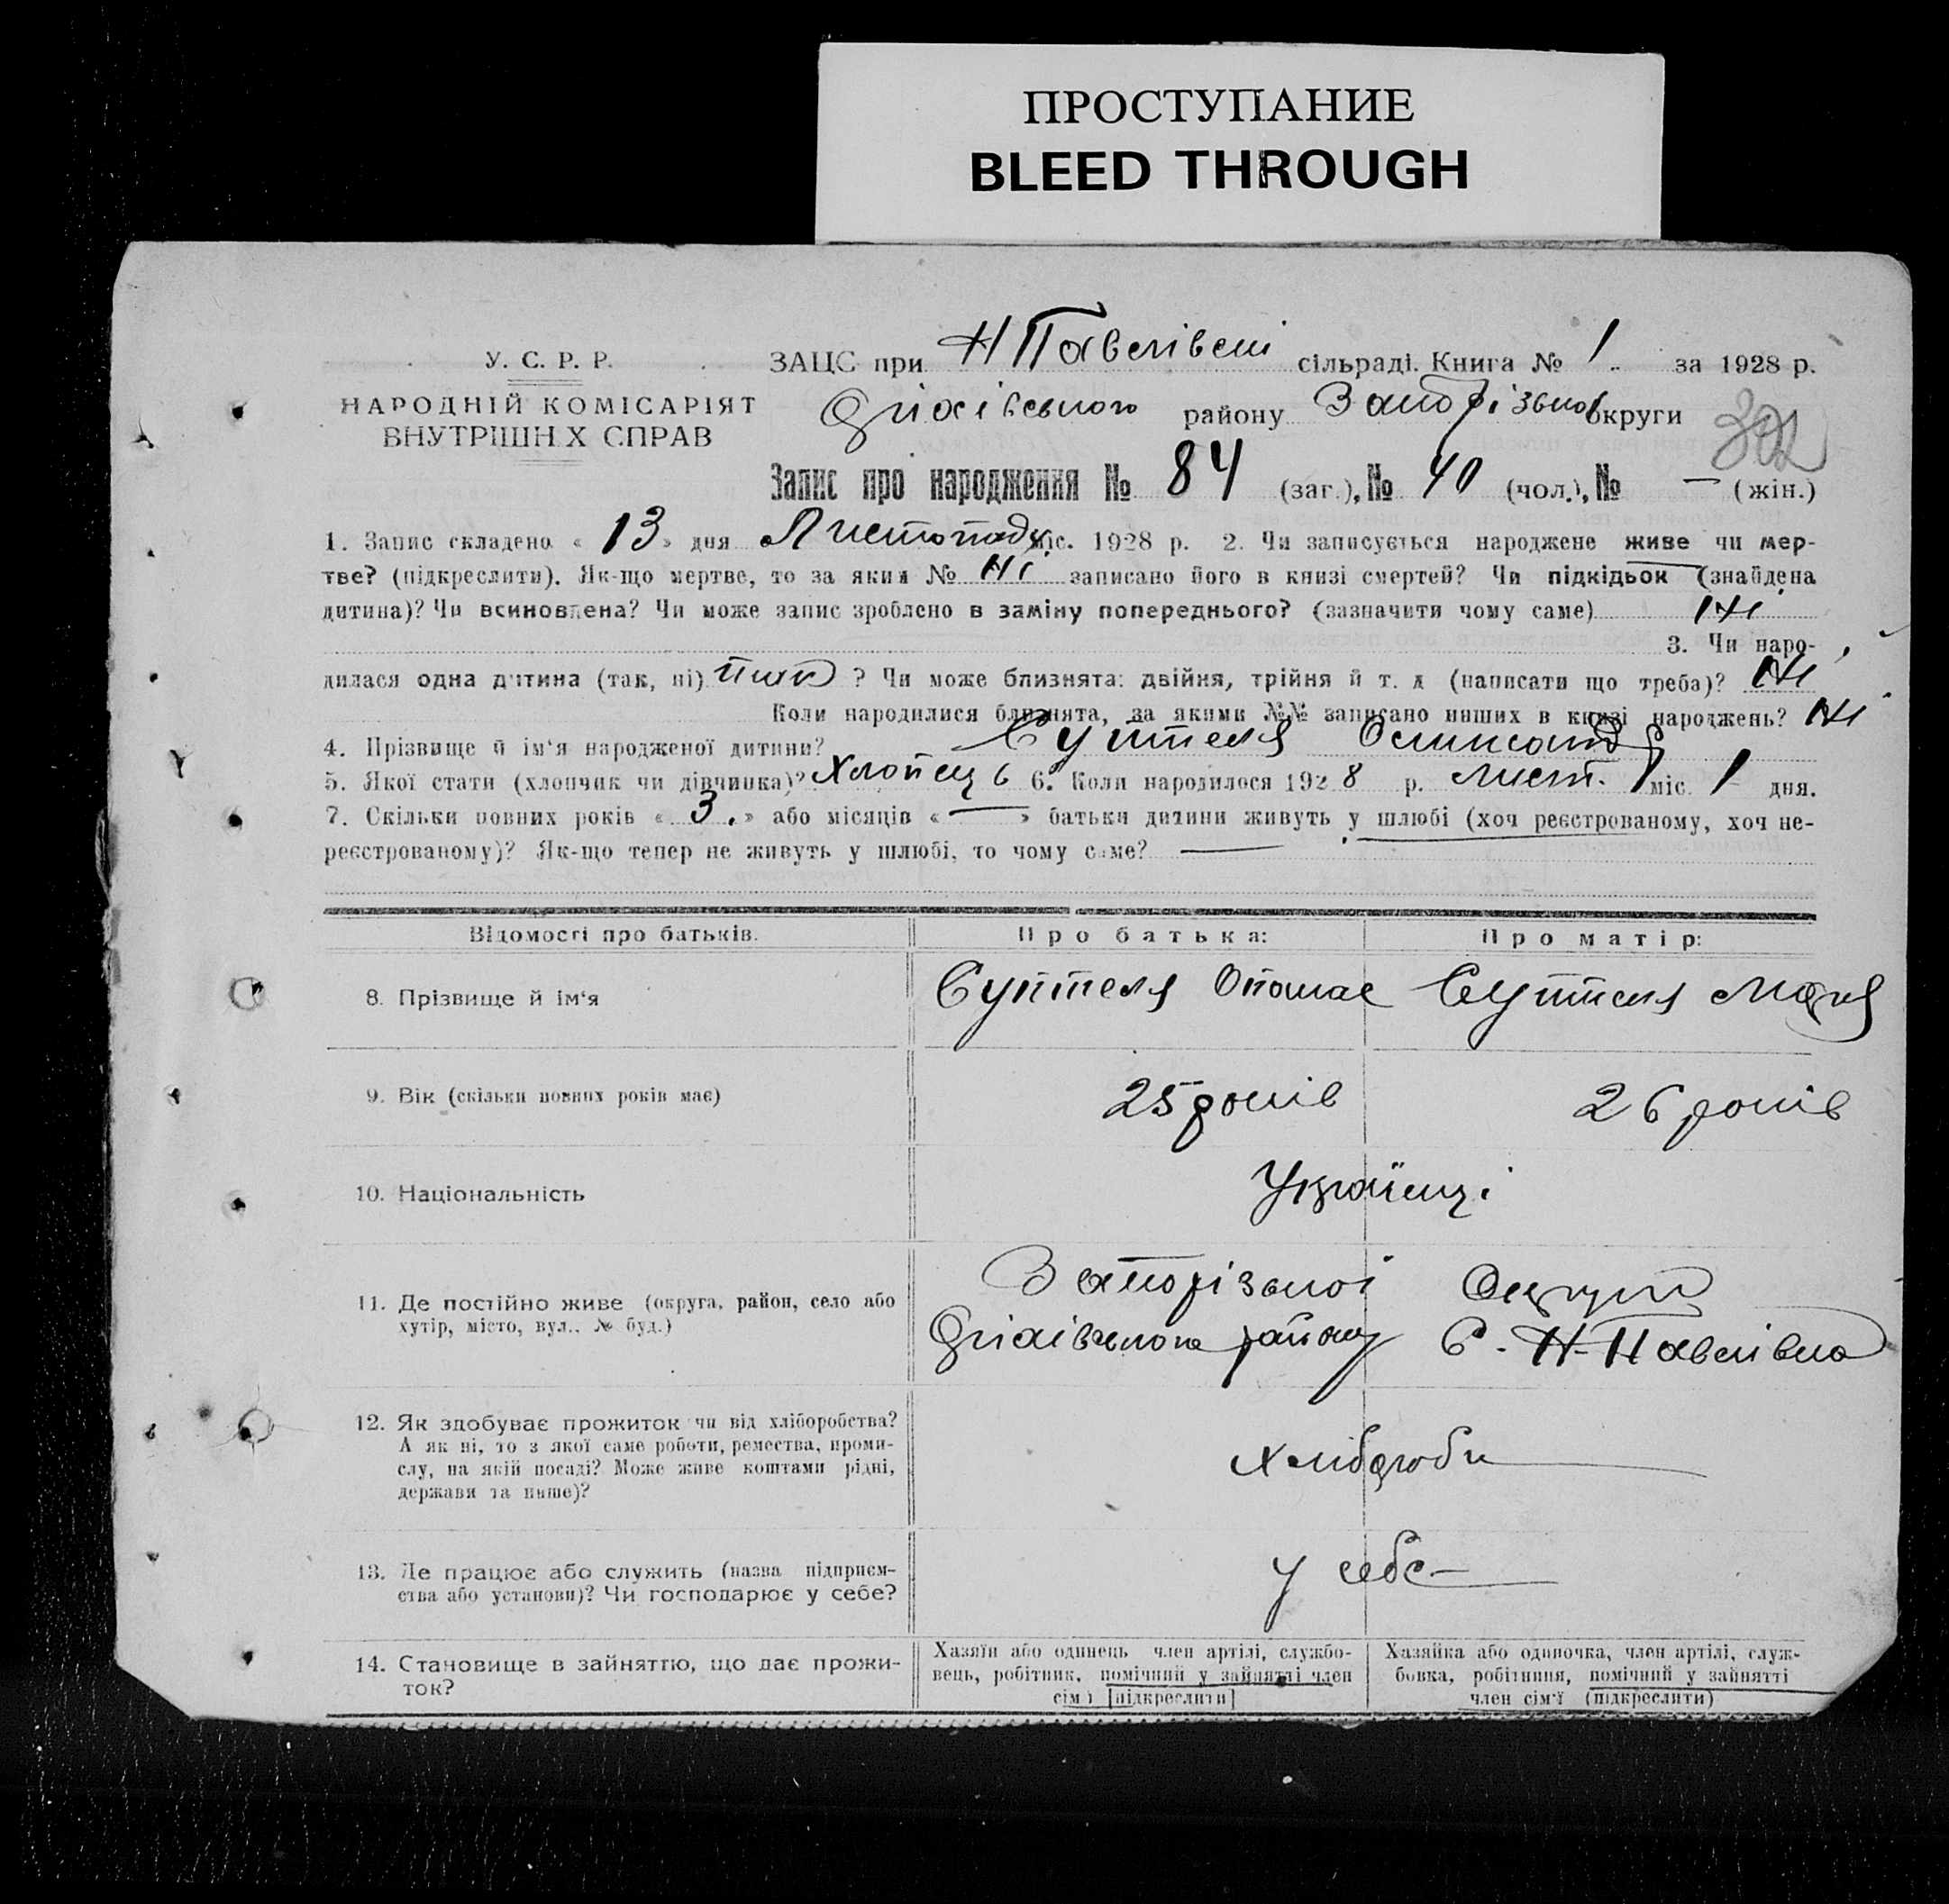 ПРОСТУПАНИЕ
BLEED THROUGH
У. С. Р. Р.
НАРОДНІЙ КОМІСАРІЯТ
ВНУТРІШНІХ СПРАВ
ЗАЦС при Н Павлівській сільраді. Книга № 1 за 1928 р.
району Запорізької округи
302
Запис про народження № 84 (заг.), № 40 (чол.), № — (жін.)
1. Запис складено « 13 » дня Листопада міс. 1928 р. 2. Чи записується народжене живе чи мер-
тве? (підкреслити). Як-що мертве, то за яким № Ні записано його в книзі смертей? Чи підкідьок (знайдена
дитина)? Чи всиновлена? Чи може запис зроблено в заміну попереднього? (зазначити чому саме) Ні
3. Чи наро-
дилася одна дитина (так, ні) так ? Чи може близнята: двійня, трійня й т. д (написати що треба)? Ні
Коли народилися близнята, за якими №№ записано инших в книзі народжень? Ні
4. Прізвище й ім‘я народженої дитини? Суптеля Олександр
5. Якої стати (хлопчик чи дівчинка)? Хлопець 6. Коли народилося 1928 р. лист. міс. 1 дня.
7. Скільки повних років « 3. » або місяців « — » батьки дитини живуть у шлюбі (хоч реєстрованому, хоч не-
реєстрованому)? Як-що тепер не живуть у шлюбі, то чому саме? —
Відомості про батьків.
Про батька:
Про матір:
8. Прізвище й ім‘я
Суптеля Опанас
Суптеля
9. Вік (скільки повних років має)
25 років
26 років
10. Національність
Українці
11. Де постійно живе (округа, район, село або
хутір, місто, вул.. № буд.)
Запорізької Округи
району С. Н-Павлівка
12. Як здобуває прожиток чи від хліборобства?
А як ні, то з якої саме роботи, ремества, проми-
слу, на якій посаді? Може живе коштами рідні,
держави та инше)?
Хлібороби
13. Де працює або служить (назва підприєм-
ства або установи)? Чи господарює у себе?
у себе
14. Становище в зайняттю, що дає прожи-
ток?
Хазяїн або одинець член артілі, службо-
вець, робітник, помічний у зайнятті член
сім'ї [підкреслити]
Хазяйка або одиночка, член артілі, служ-
бовка, робітниця, помічний у зайнятті
член сім‘ї (підкреслити)